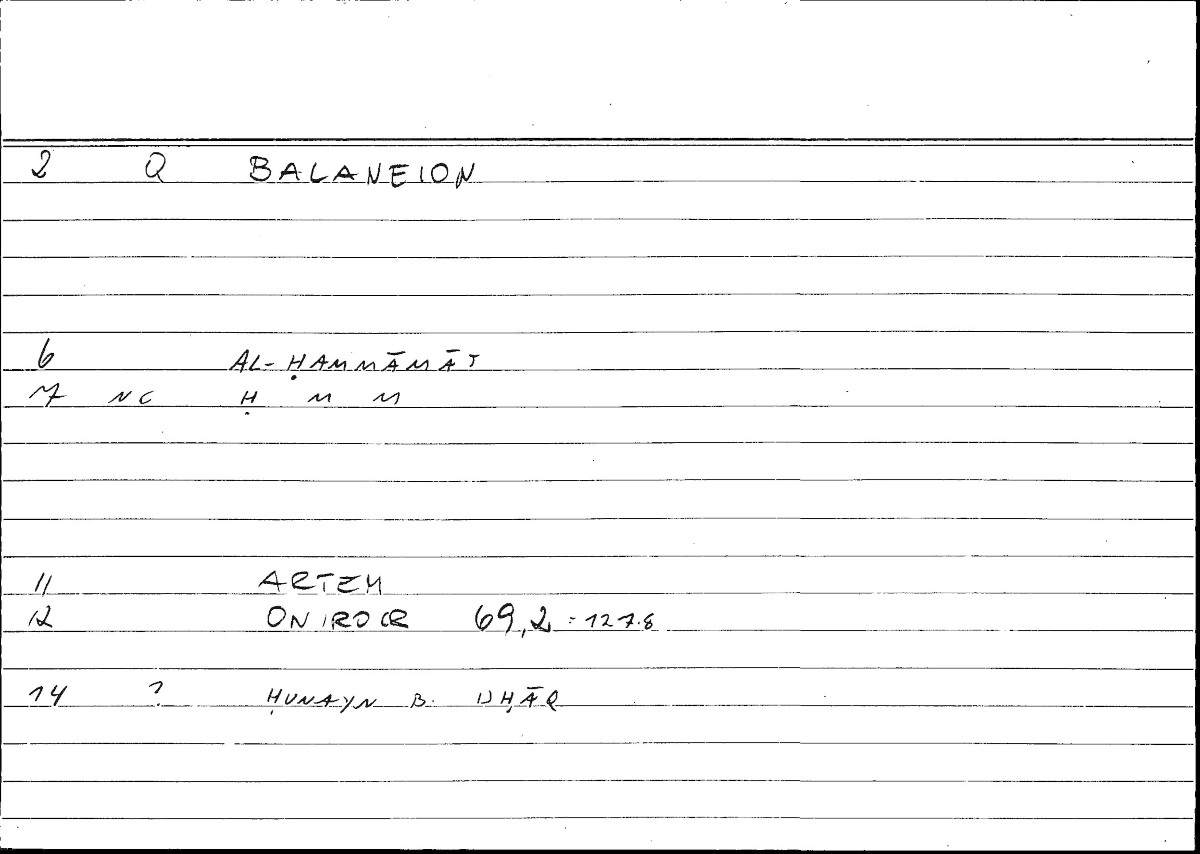 2 Q BALANEION
6 AL-ḤAMMĀMĀT
7 NC Ḥ M M
11 ARTEM
12 ONIROCR 69,2 = 127.8
14 ? ḤUNAYN B. ISḤĀQ